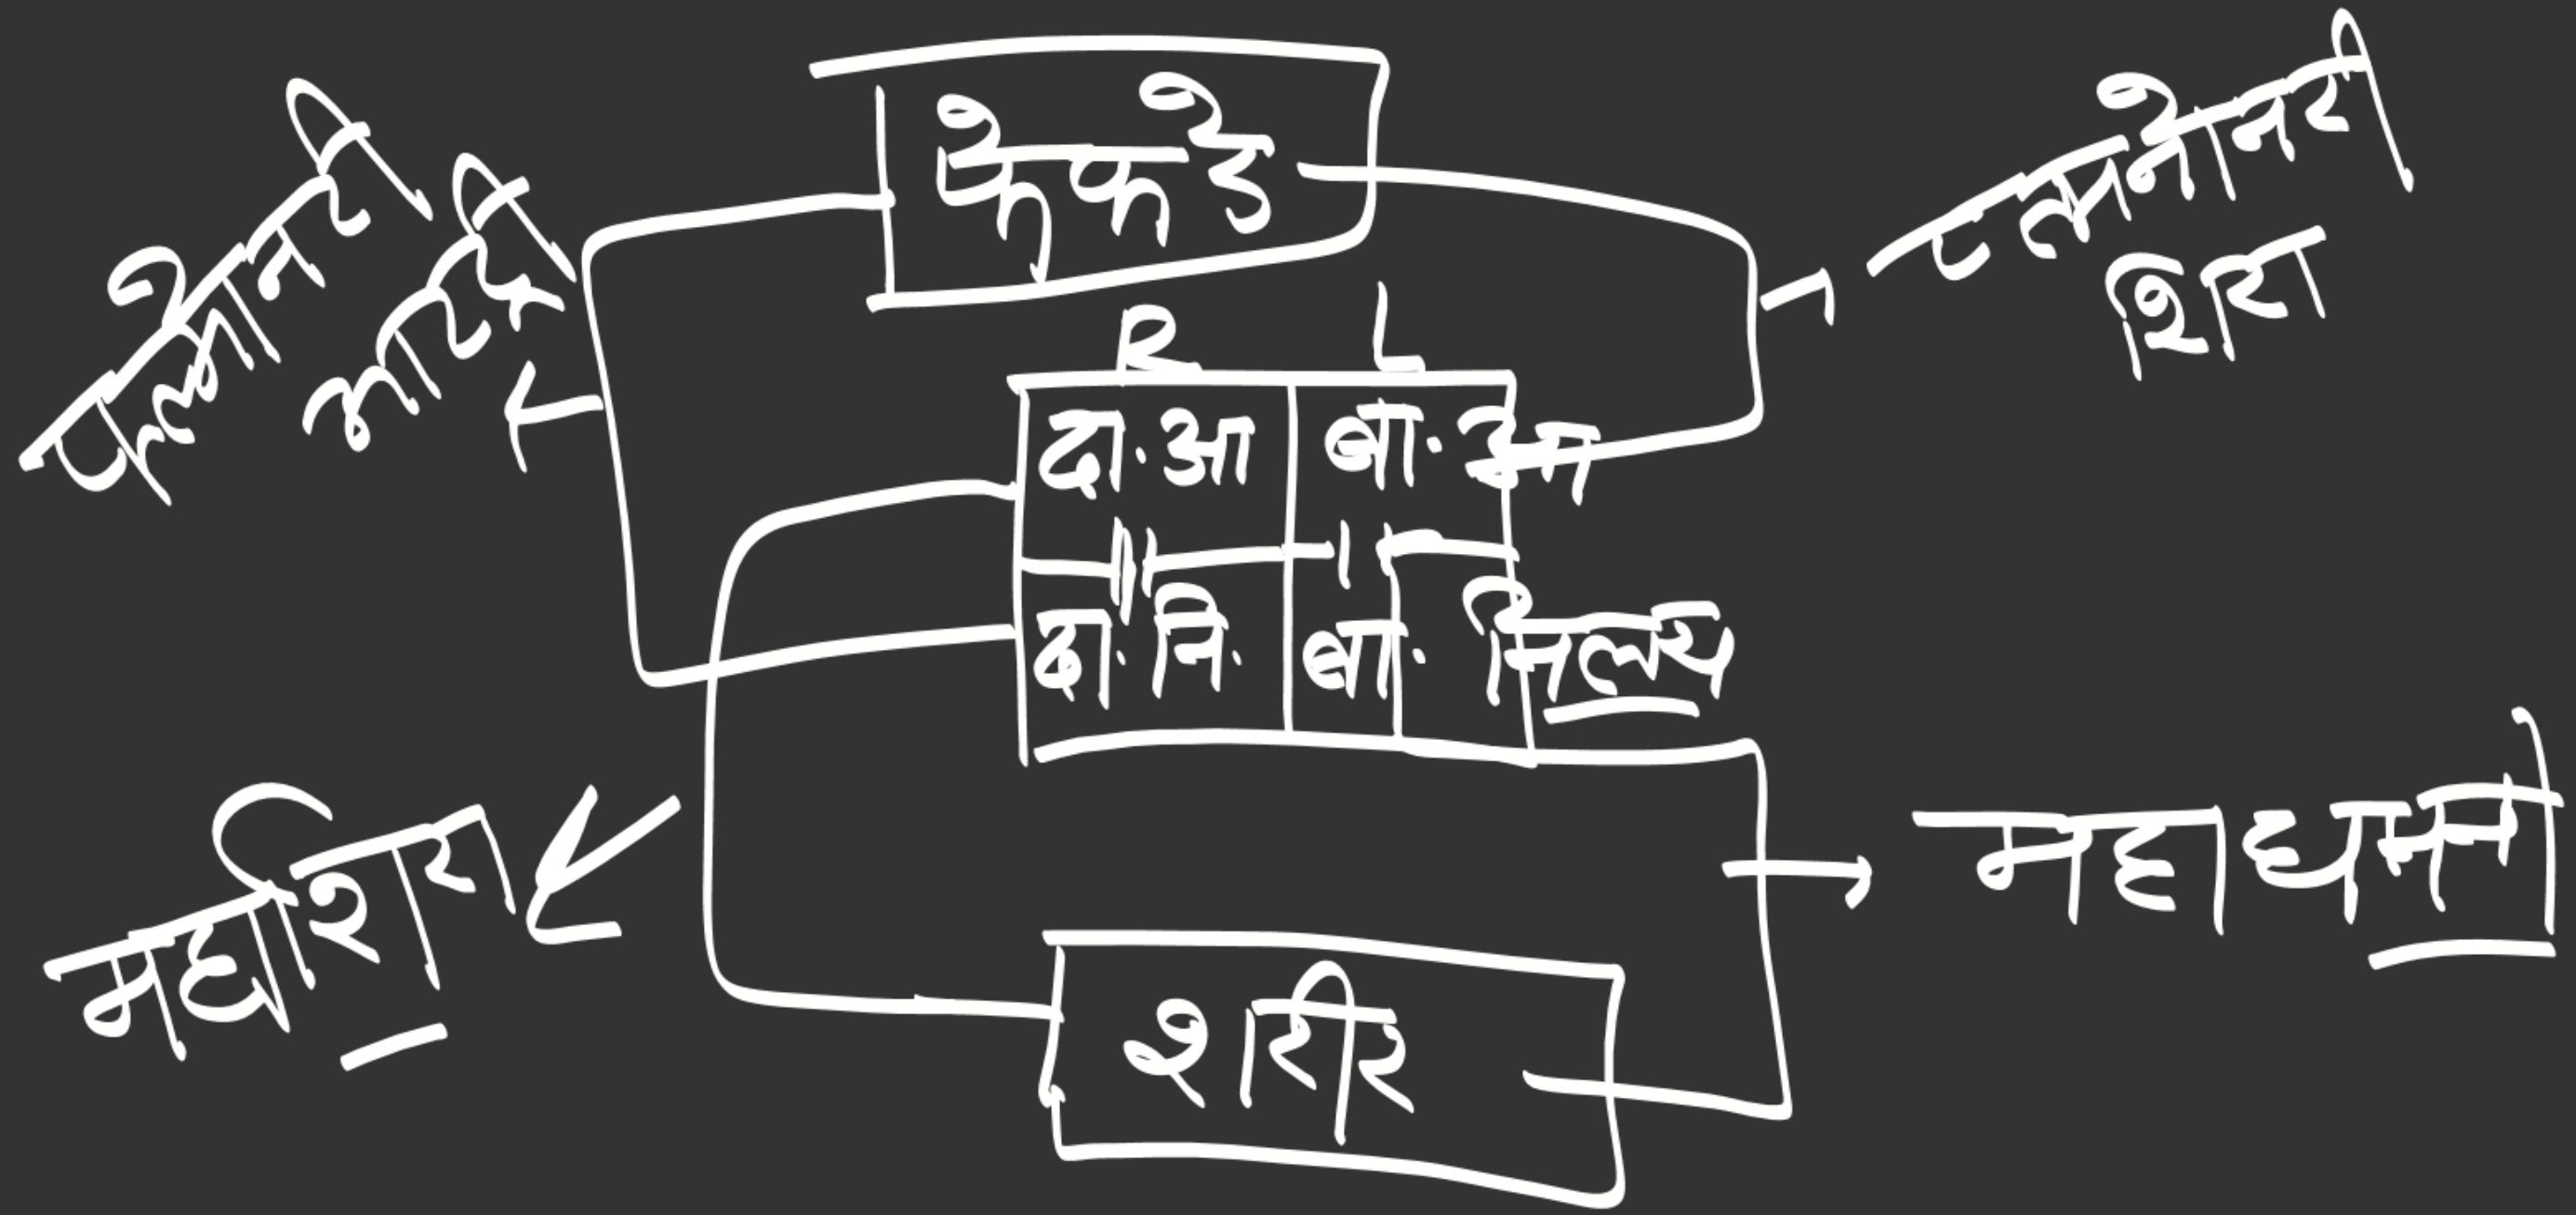 फेफडे
पल्मोनरी
आर्टरी
पल्मोनरी
शिरा
R L
दा. आ बा. अा
दा. नि. बा. निलय
महाशिरा
महाधमनी
शरीर